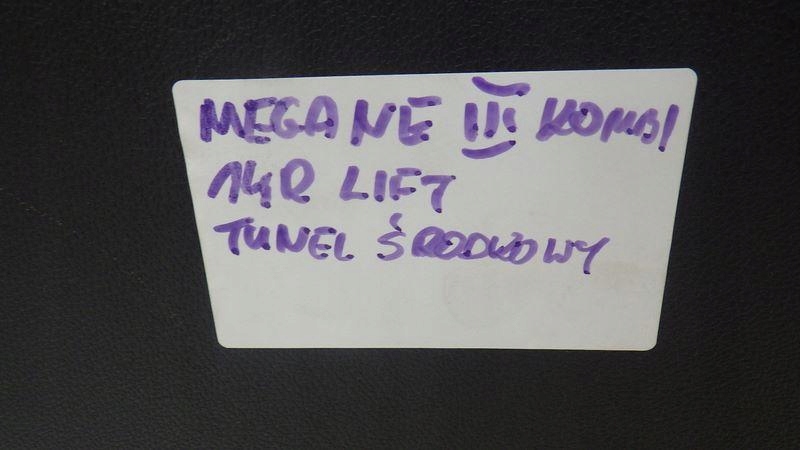 MEGANE III KOMBI
14R LIFT
TUNEL ŚRODKOWY